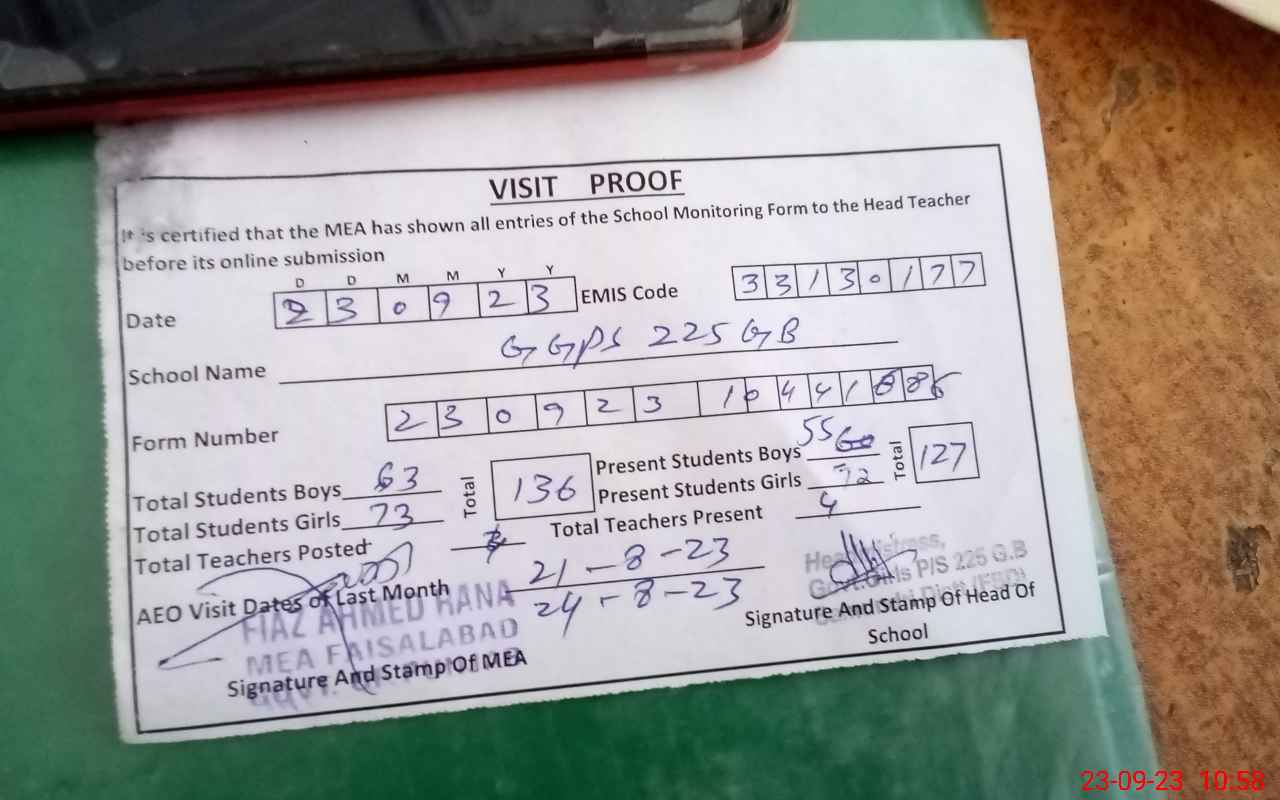 VISIT PROOF
It is certified that the MEA has shown all entries of the School Monitoring Form to the Head Teacher
before its online submission
D D M M Y Y
Date 2 3 0 9 2 3 EMIS Code 3 3 1 3 0 1 7 7
School Name GGPS 225 GB
Form Number 2 3 0 9 2 3 1 0 4 4 1
Total Students Boys 63 Total 136 Present Students Boys 55 Total 127
Total Students Girls 73 Present Students Girls 72
Total Teachers Posted Total Teachers Present 4
AEO Visit Dates of Last Month 21-8-23
24-8-23
FIAZ AHMED RANA
MEA FAISALABAD
Signature And Stamp Of MEA
Headmistress,
Govt. Girls P/S 225 G.B
Signature And Stamp Of Head Of
School
23-09-23 10:58